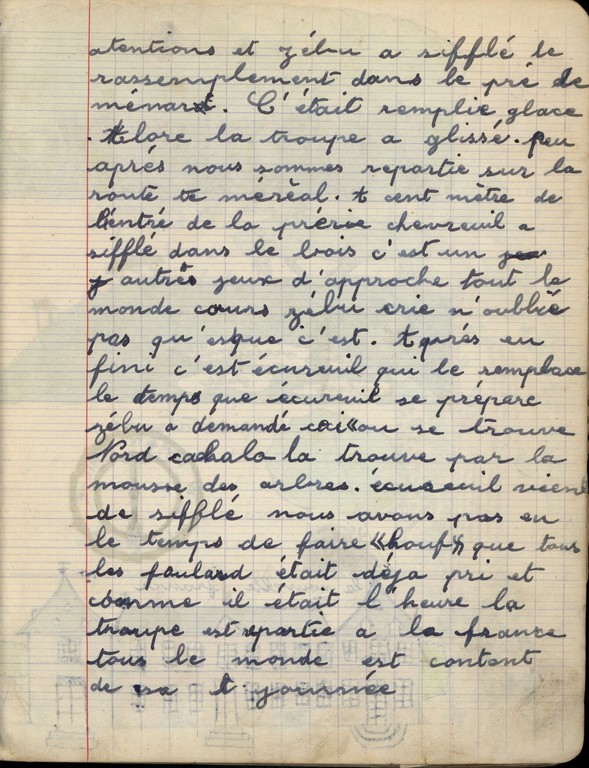 atentions et zébu a sifflé le
rassemplement dans le pré de
ménard. C'était remplie glace
. Alore la troupe a glissé. peu
aprés nous sommes repartie sur la
route te méréal. A cent mètre de
l'entré de la prérie chevreuil a
sifflé dans le bois c'est un
autres jeux d'approche tout le
monde cours zébu crie n'oublié
pas qu'esque c'est. Aprés en
fini c'est écureuil qui le remplace
le temps que écureuil se prépare
zébu a demandé ou se trouve
Nord cachalo la trouve par la
mousse des arbres. écureuil vient
de sifflé nous avons pas eu
le temps de faire «houf» que tous
les foulard était déja pri et
comme il était l'heure la
troupe est repartie a la france
tous le monde est content
de sa journée